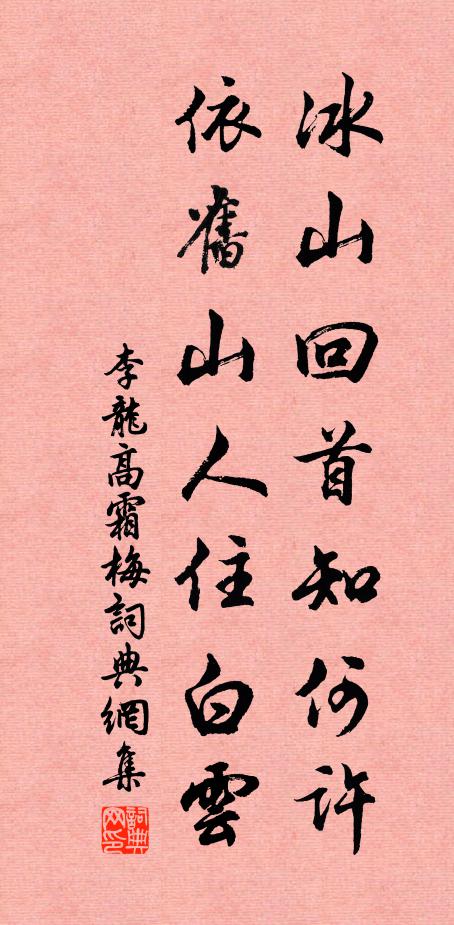 冰山回首知何許
依舊山人住白雲
李龍高霜梅詞典網集
詞典網印